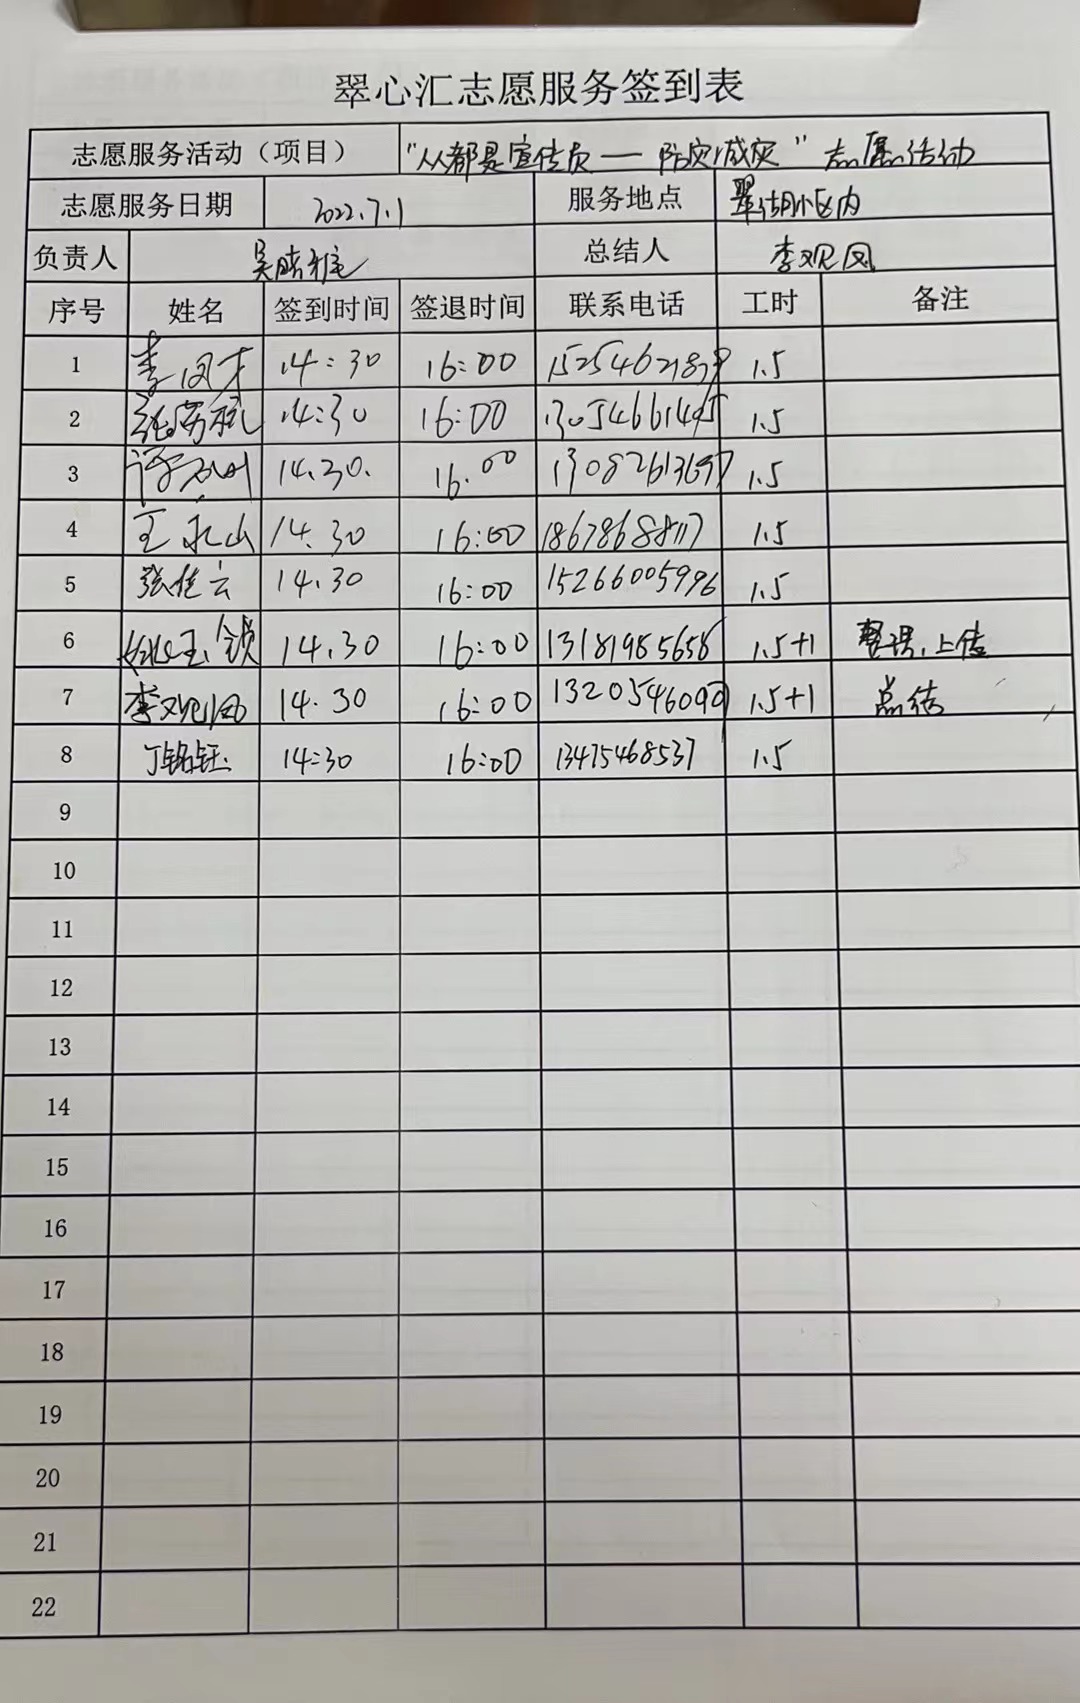 翠心汇志愿服务签到表
志愿服务活动（项目） "人人都是宣传员——防灾减灾" 志愿活动
志愿服务日期 2022.7.1 服务地点 翠湖小区内
负责人 总结人 李观凤
序号 姓名 签到时间 签退时间 联系电话 工时 备注
1 14:30 16:00 1.5
2 14:30 16:00 1.5
3 14.30. 16.00 1.5
4 王永山 14.30 16:00 1.5
5 张佳云 14.30 16:00 15266005996 1.5
6 姚玉锁 14.30 16:00 13181985658 1.5+1 整理、上传
7 李观凤 14.30 16:00 1.5+1 总结
8 丁铭钰 14:30 16:00 13475468537 1.5
9
10
11
12
13
14
15
16
17
18
19
20
21
22